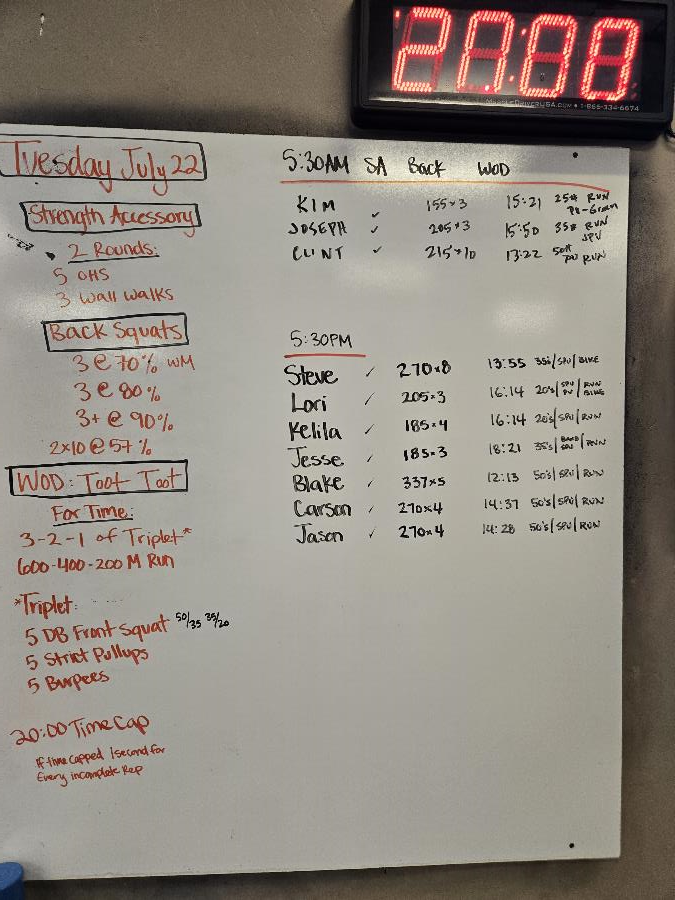 21:00
MuscleDriverUSA.com • 1-866-334-6674
Tuesday July 22
Strength Accessory
2 Rounds:
5 OHS
3 Wall Walks
Back Squats
3 @ 70% WM
3 @ 80%
3+ @ 90%
2x10 @ 57%
WOD: Toot Toot
For Time:
3-2-1 of Triplet*
600-400-200 M Run
*Triplet:
5 DB Front Squat 50/35 35/20
5 Strict Pullups
5 Burpees
20:00 Time Cap
If time capped 1 second for
Every incomplete Rep
5:30AM SA Back WOD
KIM 155×3 15:21 25# RUN PU-Green
JOSEPH ✓ 205×3 15:50 35# RUN SPU
CLINT ✓ 215×10 13:22 50# PU RUN
5:30PM
Steve ✓ 270×8 13:55 35's/SPU/BIKE
Lori ✓ 205×3 16:14 20's/SPU PU/RUN BIKE
Kelila ✓ 185×4 16:14 20's/SPU/RUN
Jesse ✓ 185×3 18:21 35's/BAND SPU/RUN
Blake ✓ 337×5 12:13 50's/SPU/RUN
Carson ✓ 270×4 14:37 50's/SPU/RUN
Jason ✓ 270×4 14:28 50's/SPU/RUN